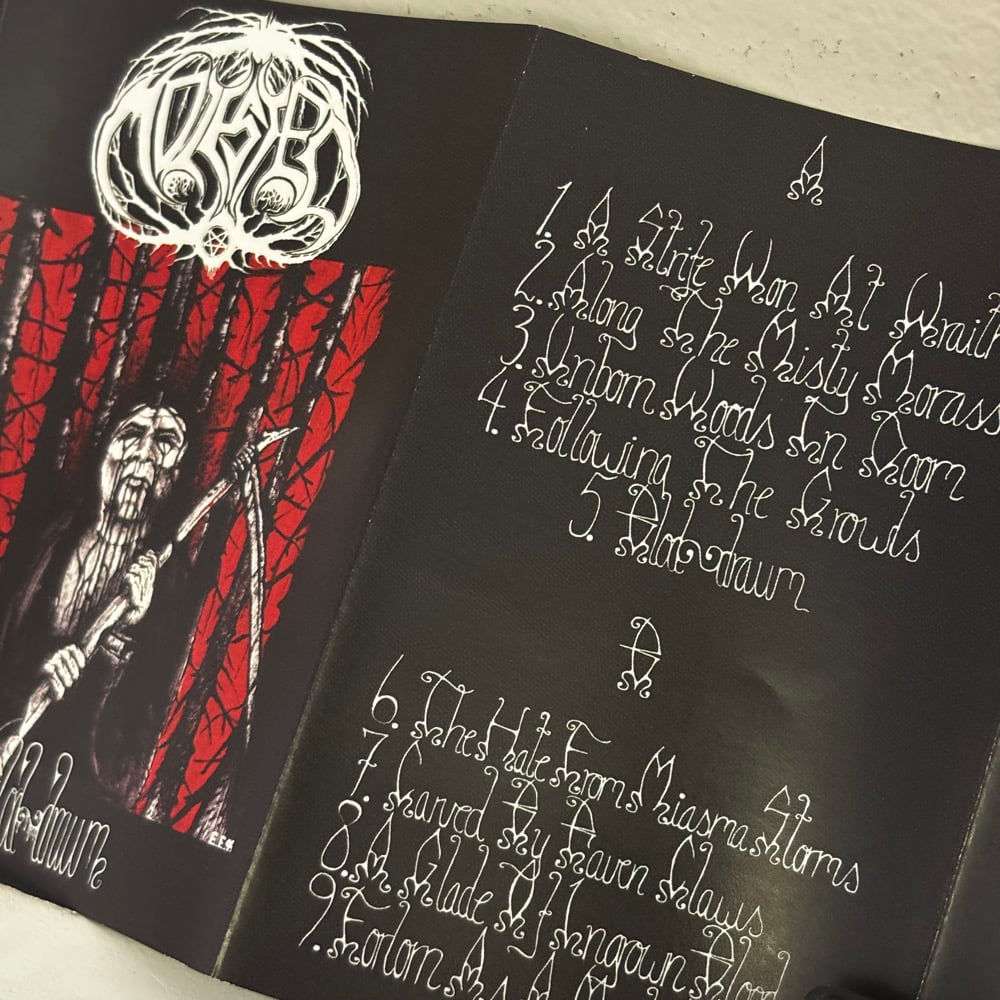 Blod-draum
A
1. A Strife Won At Wrait
2. Along The Misty Morass
3. Unborn Woods In Doom
4. Following The Growls
5. Blod-draum
B
6. The Hate From Miasma Storms
7. Carved By Raven Claws
8. A Glade Of Ingrown Blood
9. Forlorn As A